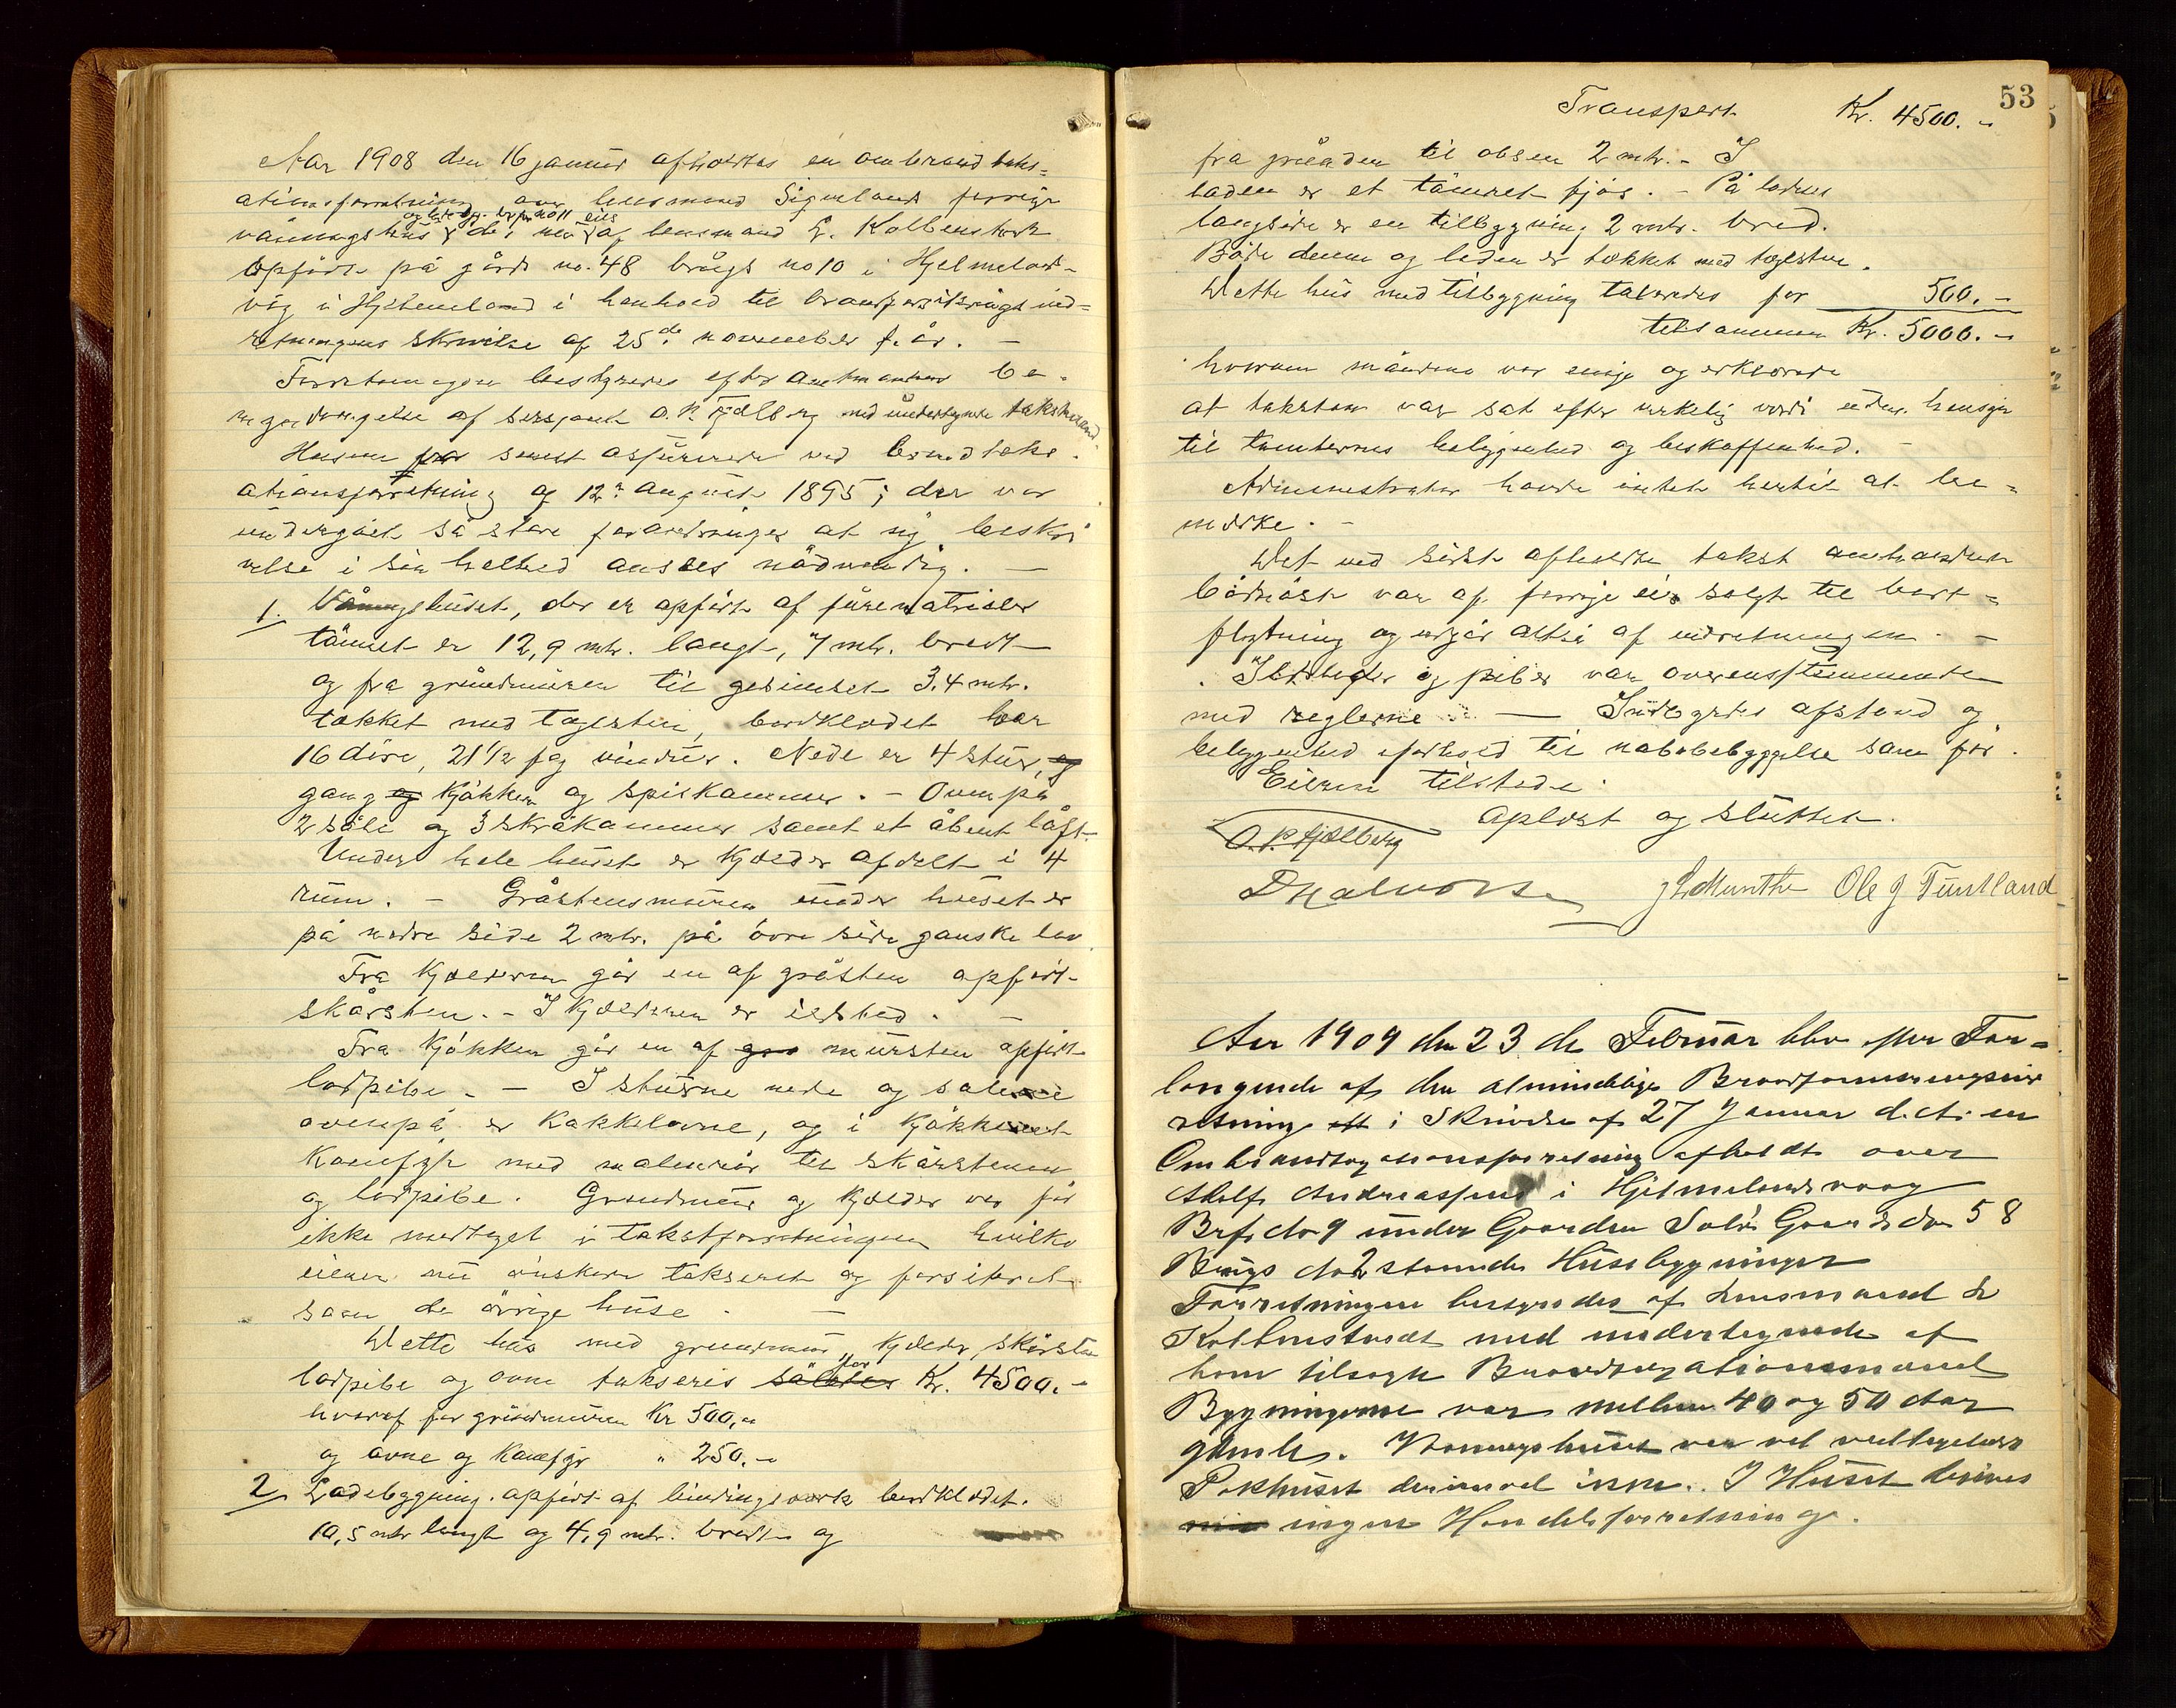 Aar 1908 den 16 januar afholdtes en ombrandtaks=
ationsforretning over lensmand Sigmlands forrige
våningshus og ladebygn. brf. no 11 der nu eies af lensmand L. Kolbenstvedt
Opført på gårds no. 48 brugs no 10 i Hjelmelands-
våg i Hjelmeland i henhold til brandforsikringsind=
retningens skrivelse af 25de november f. år. —
Forretningen bestyredes efter amtmandens be-
myndigelse af sersjant O. P. Fjelberg med undertegnede takstmænd.
Husene senest assurerede ved brandtaks-
ationsforretning af 12te august 1895; der var
undergået så store forandringer at ny beskri
velse i sin helhed ansees nødvendig. —
1. Våningshuset, der er opført af furematrialer
tømret er 12,9 mtr. langt, 7 mtr. bredt
og fra grundmuren til gesimset 3.4 mtr.
tækket med taglsten, bordklædet har
16 döre, 21 1/2 fag vinduer. Nede er 4 stuer, og
gang og kjøkken og spiskammer. - Ovenpå
2 sale og 3 skråkammer samt et åbent loft.
Under hele huset er kjælder afdelt i 4
rum. - Gråstensmuren under huset er
på nedre side 2 mtr. på övre side ganske lav
Fra kjælderen går en af gråsten opført
skorsten. - I kjælderen er ildsted. -
Fra kjøkken går en af mursten opført
lodpibe. - I stuerne nede og salene
ovenpå er kakkelovne, og i kjøkkenet
komfyr med til skorstenen
og lodpibe. Grundmur og kjælder var før
ikke medtaget i takstforretningen hvilke
eieren nu ønskere takseret og forsikret
som de övrige huse. —
Dette hus med grundmur, kjælder, skorsten
lodpibe og ovne takseres således for Kr. 4500.-
hvoraf for grundmuren Kr 500,-
og ovne og komfyr " 250.-
2. Ladebygning. opført af bindingsværk bordklædt.
10,5 mtr langt og 4,9 mtr. bredt og
53
Transport Kr. 4500.-
fra grunden til obsen 2 mtr. - I
laden er et tömret fjös. - På ladens
langside er en tilbygning 2 mtr. bred.
Både denne og laden er tækket med taglsten.
Dette hus med tilbygning takseredes for 500.-
tilsammen Kr. 5000.-
hvorom mændene var enige og erklærede
at taksten var sat efter virkelig værdi uden hensyn
til tomternes beliggenhed og beskaffenhed. -
Administrator havde intet hertil at be=
mærke. -
Det ved sidst afholdte takst omhandlede
var af forrige eier solgt til bort=
flytning og udgår altså af indretningen. -
Ildsteder og piber var overensstemmende
med reglerne — Indbyrdes afstand og
beliggenhed i forhold til nabobebyggelse som før.
Eieren tilstede.
Oplæst og sluttet.
O. P. Fjelberg
D Halvorsen J L Munthe Ole J Tuntland
Aar 1909 den 23 de Februar blev efter For=
langende af den almindelige Brandforsikringsind
retning i Skrivelse af 27 Januar d. A. en
Ombrandtaxationsforretning afholdt over
Adolf Andreassens i Hjelmelandsvaag
Brf. No 9 under Gaarden Gaards No 58
Brugs No 2 staaende Husebygninger
Forretningen bestyredes af Lensmand L
Kolbenstvedt med undertegnede af
ham tilsagte Brandtaxationsmænd
Bygningerne var mellem 40 og 50 Aar
gamle. Vaaningshuset var vel vedligeholdt
Pakhuset derimod inne. I Huset drives
ingen Handelsforretning.